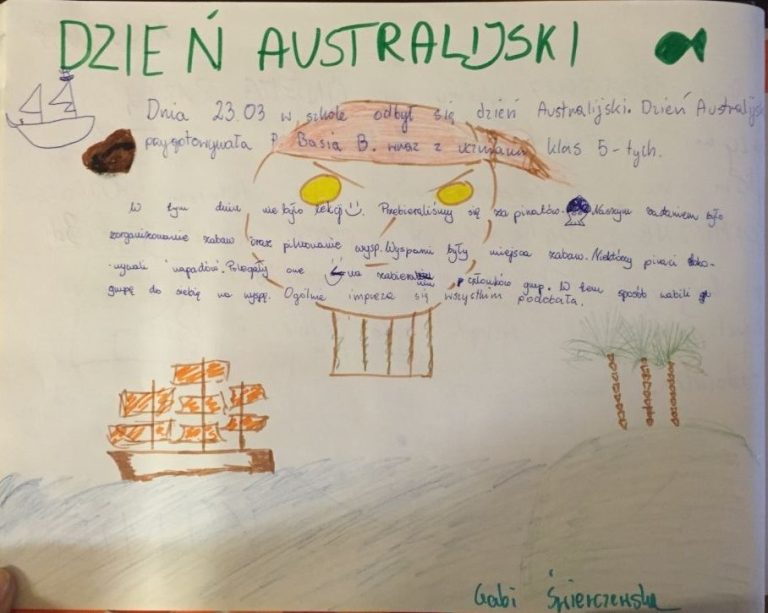 DZIEŃ AUSTRALIJSKI
Dnia 23.03 w szkole odbył się dzień Australijski. Dzień Australijski
przygotowywała P. Basia B. wraz z uczniami klas 5-tych.
W tym dniu nie było lekcji. Przebieraliśmy się za piratów. Naszym zadaniem było
zorganizowanie zabaw oraz pilnowanie wysp. Wyspami były miejsca zabaw. Niektórzy piraci doko-
nywali napadów. Polegały one na zabieraniu członków grup. W ten sposób wabili
grupę do siebie na wyspę. Ogólnie impreza się wszystkim podobała.
Gabi Świerczewska